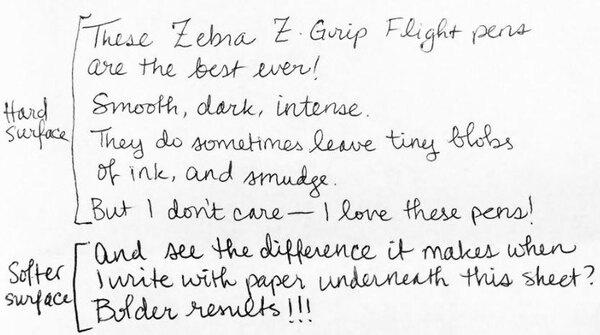 These Zebra Z-Grip Flight pens
are the best ever!
Smooth, dark, intense.
They do sometimes leave tiny blobs
of ink, and smudge.
But I don't care — I love these pens!
Hard
surface
And see the difference it makes when
I write with paper underneath this sheet?
Bolder results!!!
Softer
surface